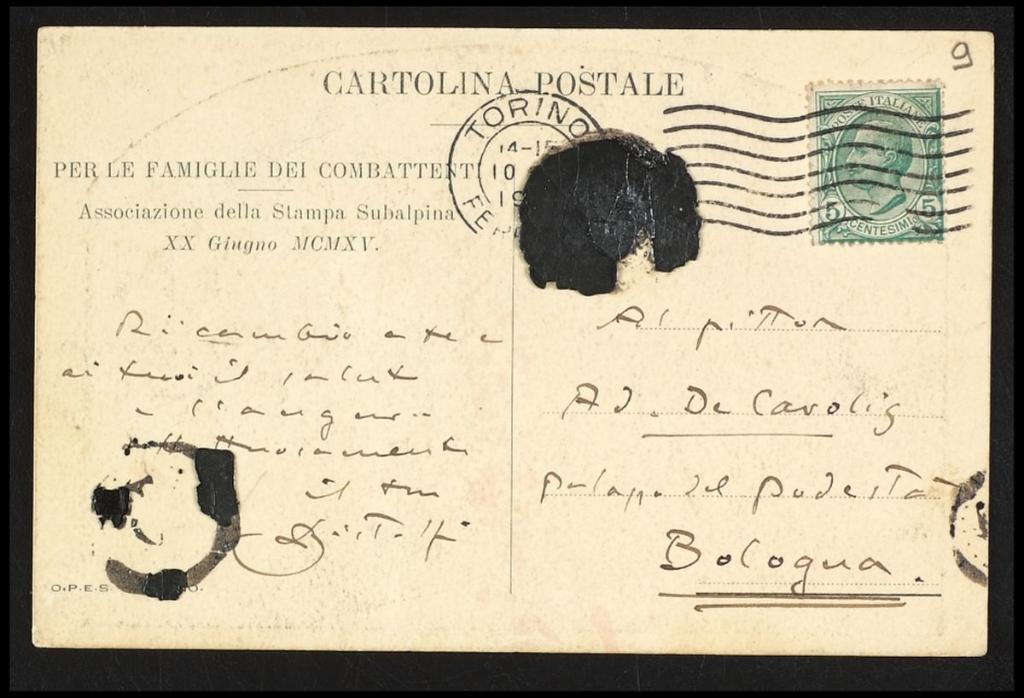 9
CARTOLINA POSTALE
TORINO
14-15
10
19
FE
POSTE ITALIANE
5 5
CENTESIMI
PER LE FAMIGLIE DEI COMBATTENTI
Associazione della Stampa Subalpina
XX Giugno MCMXV.
Ricambio a te e
ai tuoi il salut
e l'augurio
affettuosamente
il tuo
Al pittor
Ad. De Carolis
palazzo del podestà
Bologna.
O.P.E.S.